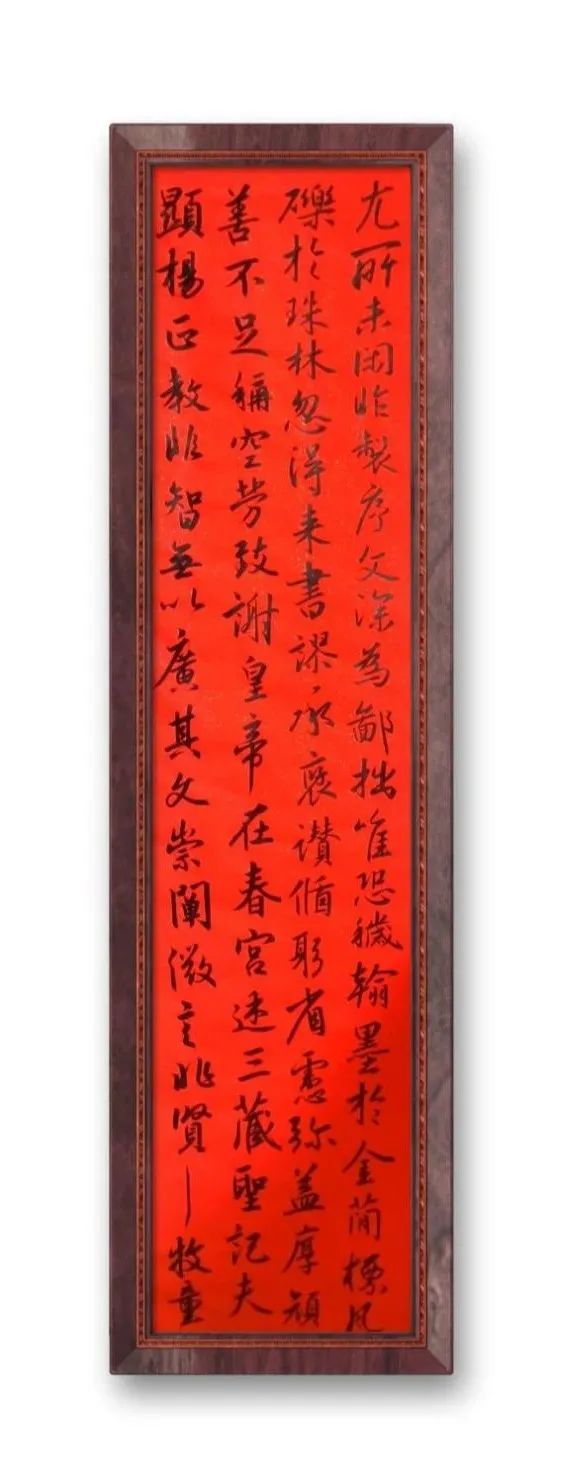 尤所未閑昨製序文深為鄙拙唯恐穢翰墨於金簡標瓦
礫於珠林忽得来書謬承褒讚循躬省慮弥益厚顔
善不足稱空勞致謝皇帝在春宮述三藏聖記夫
顯楊正教非智無以廣其文崇闡微言非賢一牧童